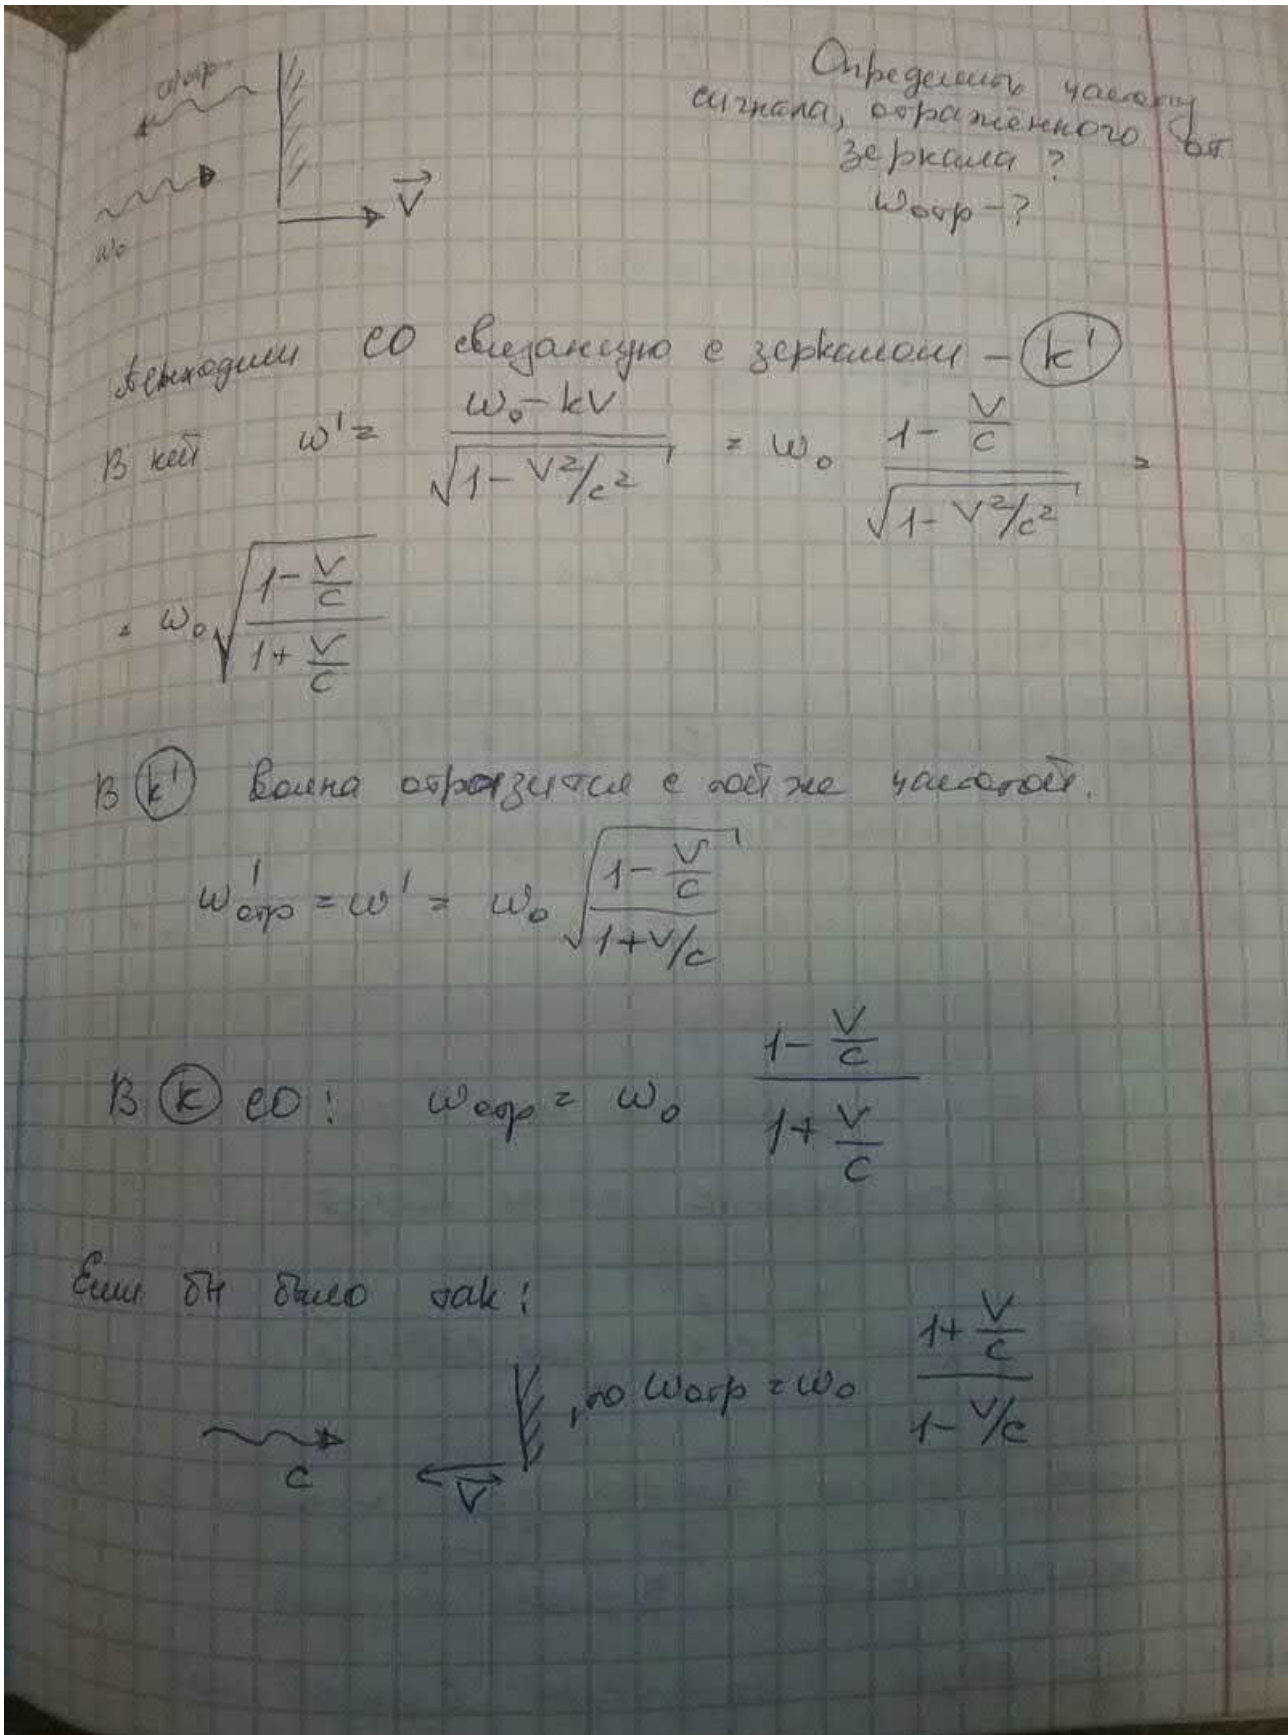 Определить частоту
сигнала, отражённого от
зеркала?
ωотр - ?
ωотр
V
ω₀
СО связанную с зеркалом - K'
В ней ω' = (ω₀ - kV)/√(1 - V²/c²) = ω₀ (1 - V/c)/√(1 - V²/c²) =
= ω₀ √((1 - V/c)/(1 + V/c))
В K' волна отразится с той же частотой.
ω'отр = ω' = ω₀ √((1 - V/c)/(1 + V/c))
В K СО: ωотр = ω₀ (1 - V/c)/(1 + V/c)
Если бы было так:
, то ωотр = ω₀ (1 + V/c)/(1 - V/c)
c
V